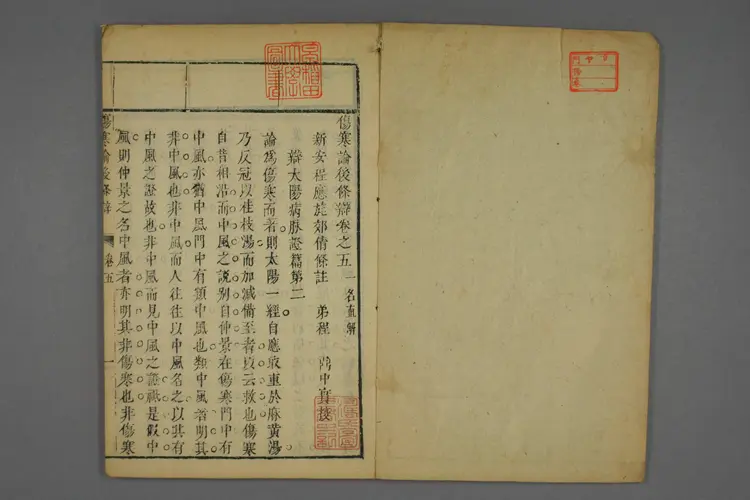 傷寒論後條辯卷之五 一名直解
新安程應旄郊倩條註 弟程
辯太陽病脉證篇第二
論爲傷寒而著則太陽一經自應取重於麻黃湯
乃反冠以桂枝湯而加減備至者哀云救也傷寒
自昔相沿而中風之說別自仲景在傷寒門中有
中風亦猶中風門中有類中風也類中風者明其
非中風也非中風而人往往以中風名之以其有
中風之證故也非中風而見中風之證祇是假中
風則仲景之名中風者亦明其非傷寒也非傷寒
傷寒論後條辯 卷五 一